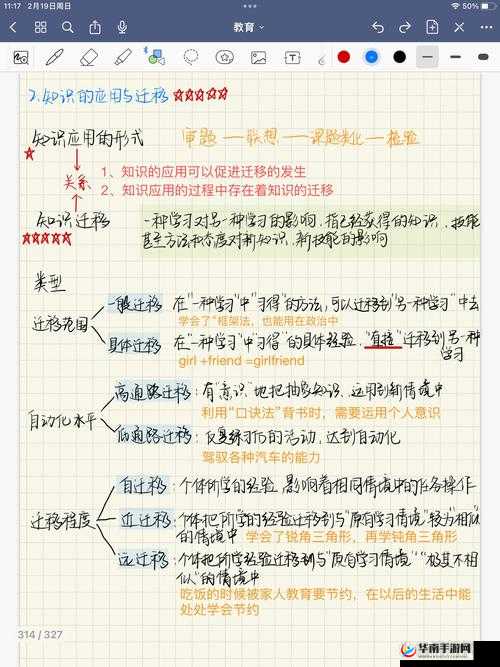 11:17 2月19日周日
50%
教育
2.知识的应用与迁移 ☆☆☆☆☆
知识应用的形式 审题一联想一课题类化一检验
关系
1、知识的应用可以促进迁移的发生
2、知识应用的过程中存在着知识的迁移
知识迁移 一种学习对另一种学习的影响，指已经获得的知识、技能
甚至方法和态度对新知识、新技能的影响
类型
迁移范围
一般迁移 在"一种学习"中"习得"的方法，可以迁移到"另一种学习"中去
学会了"框架法，也能用在政治中
具体迁移 在"一种学习"中习得"的具体经验，"直接"迁移到另一种
学习
girl +friend =girlfriend
自动化水平
高通路迁移：有"意识"地把抽象知识，运用到新情境中
利用"口诀法"背书时，需要运用个人意识
低通路迁移：反复练习后的活动，达到自动化
驾驭各种汽车的能力
迁移程度
自迁移：个体所学的经验影响着相同情境中的任务操作
近迁移：个体把所学的经验迁移到与"原有学习情境"较为"相似"
的情境中
学会了锐角三角形，再学钝角三角形
远迁移：个体把所学经验迁移到与"原有学习情境""极其不相
似"的情境中
吃饭的时候被家人教育要节约，在以后的生活中能
处处学会节约
314 / 327
华南手游网